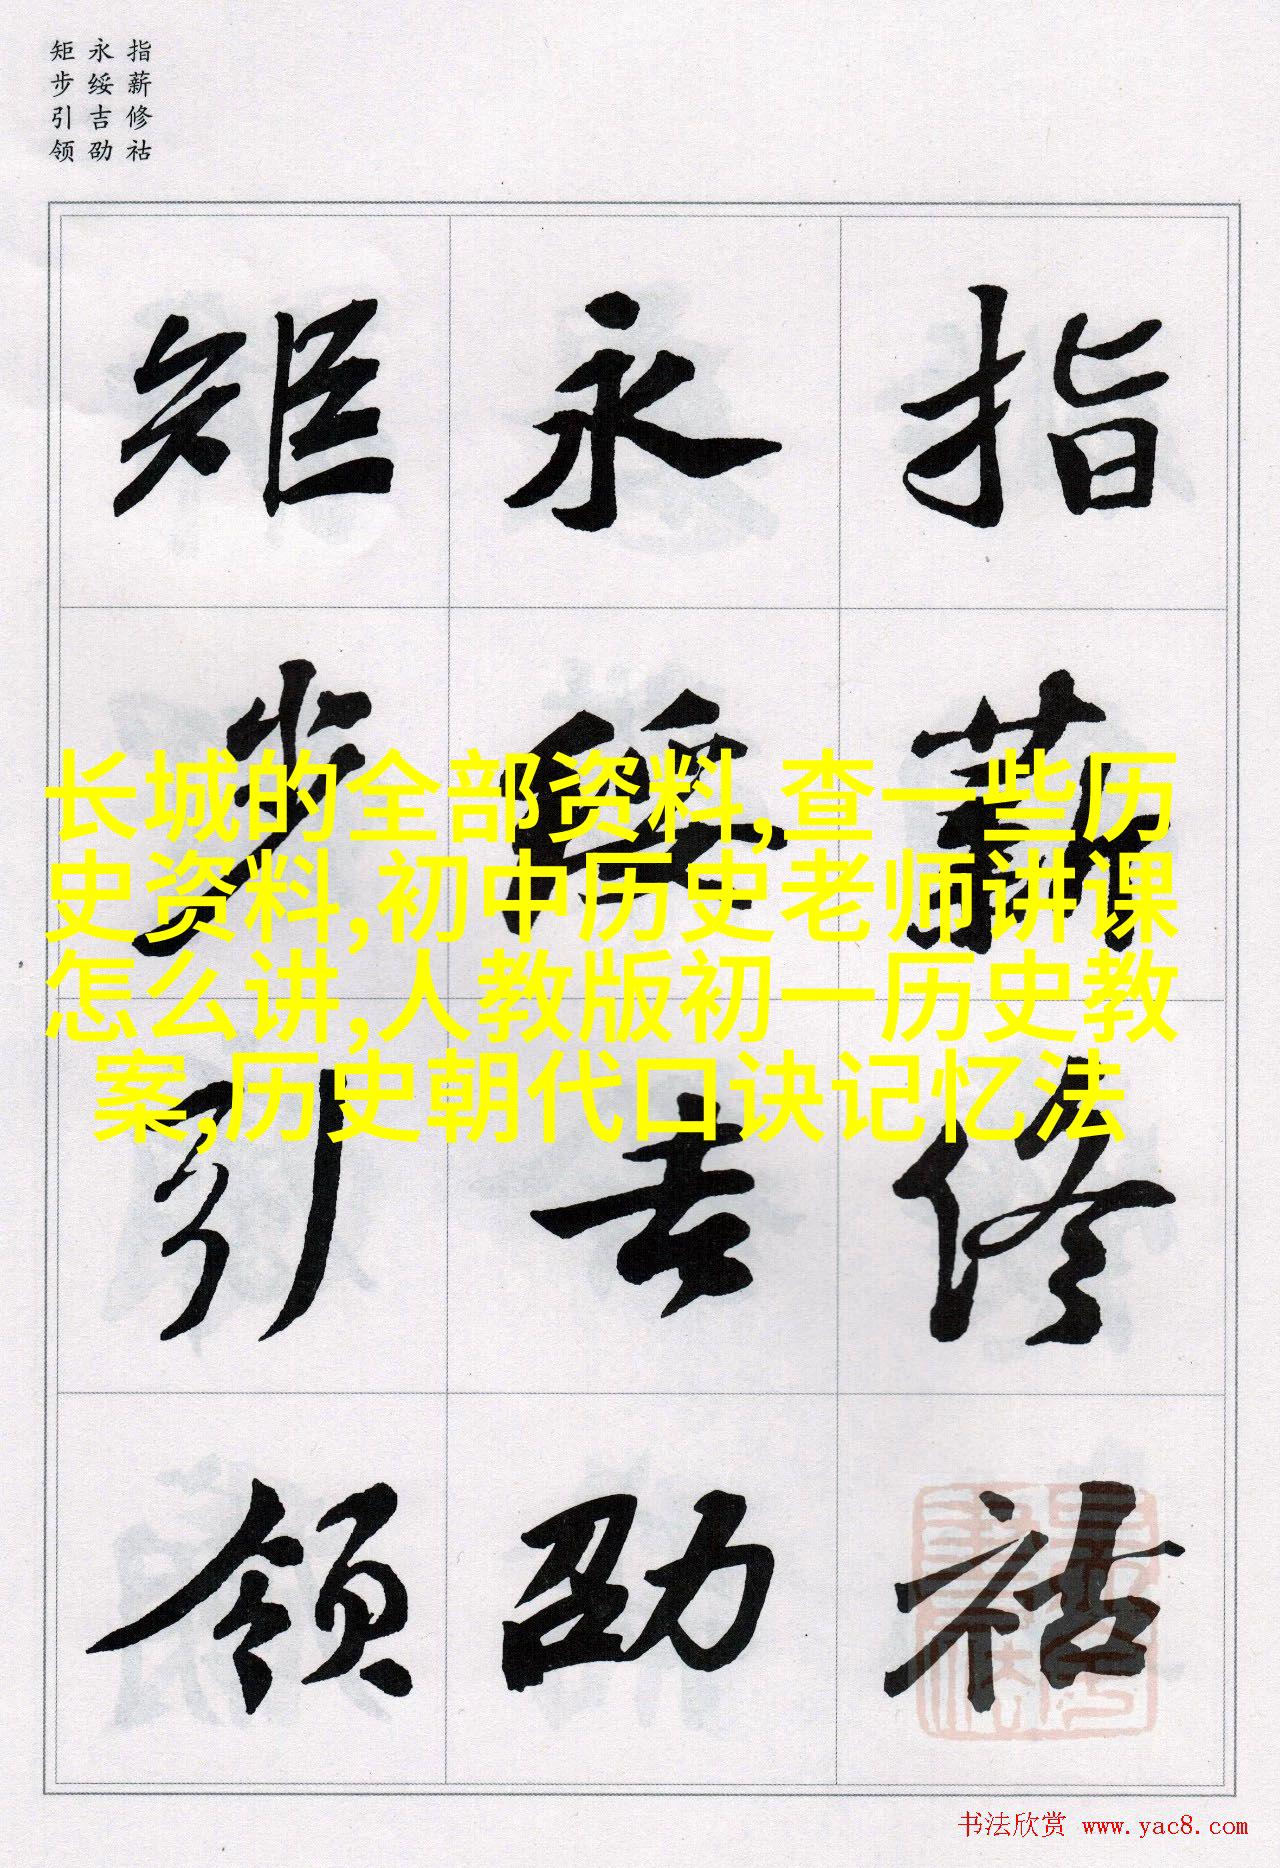 指薪修祜
永绥吉劭
矩步引领
指薪修祜
永绥吉劭
矩步引领
长城的全部资料,查一些历
史资料,初中历史老师讲课
怎么讲,人教版初一历史教
案,历史朝代口诀记忆法
书法欣赏 www.yac8.com